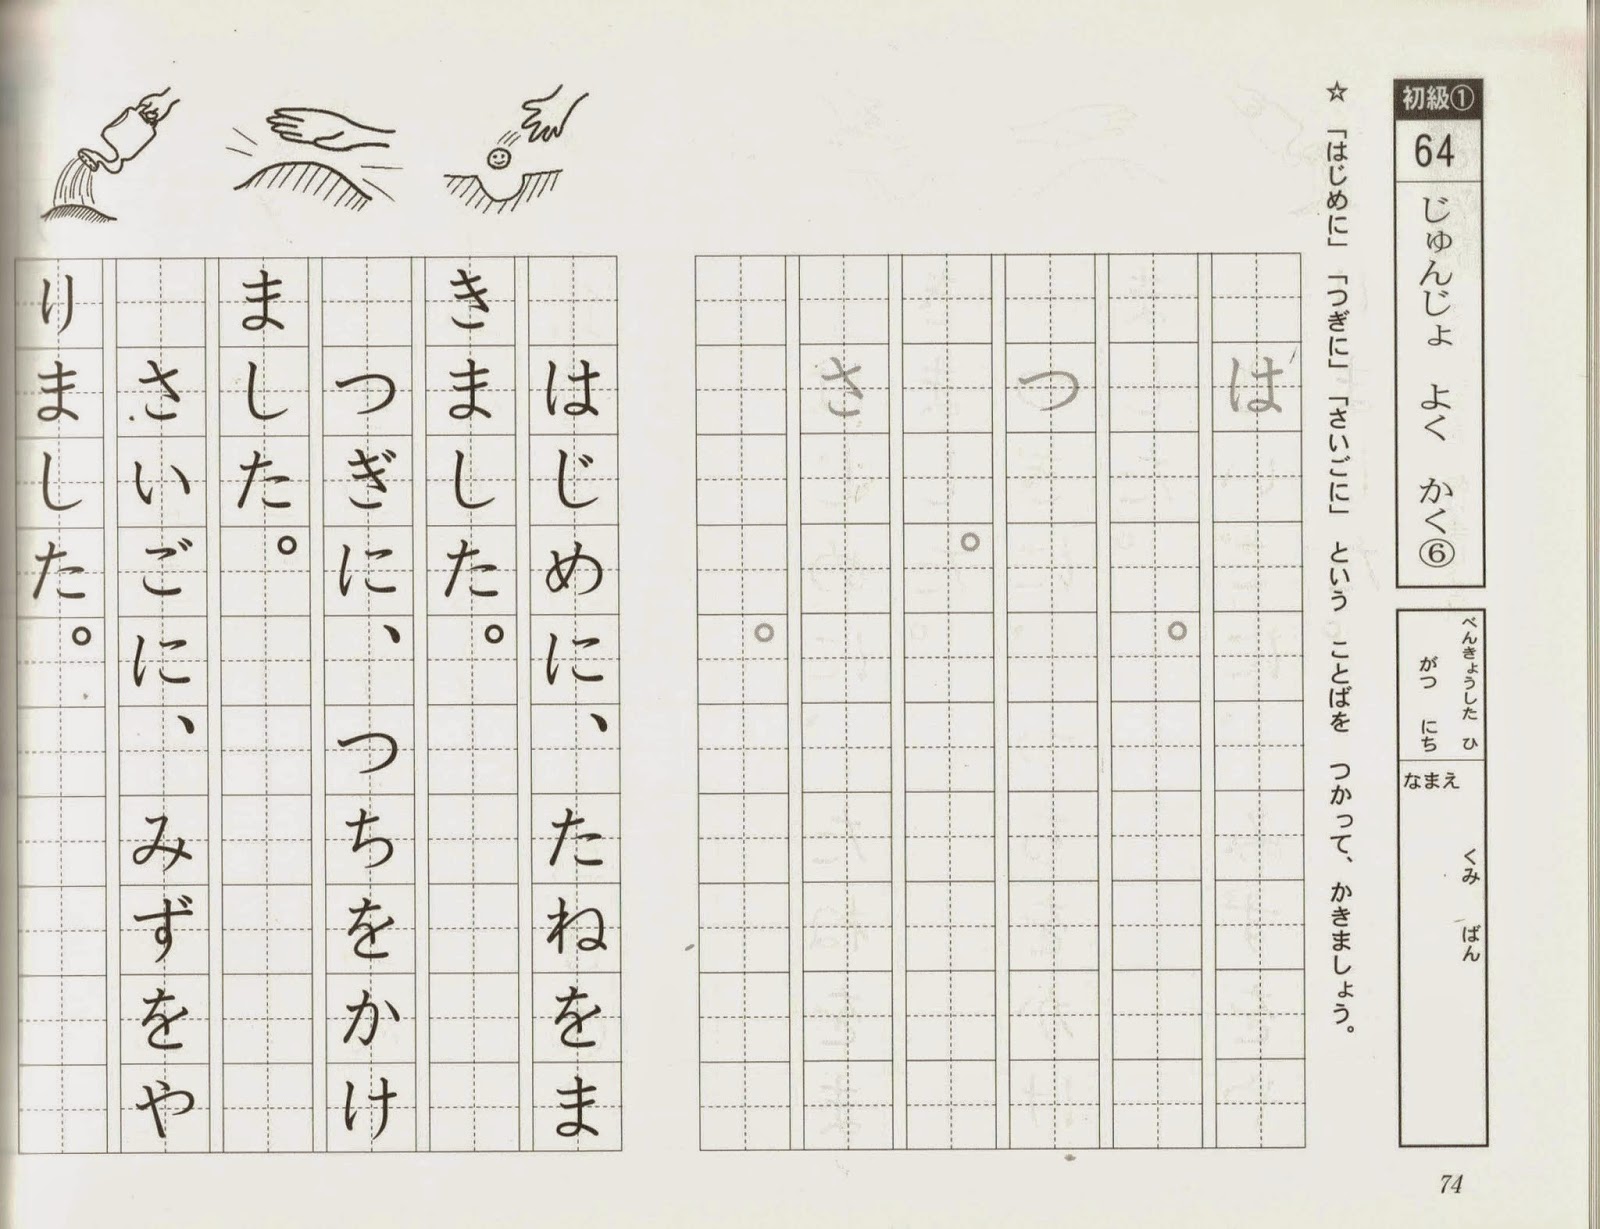 初級①
64
じゅんじょ よく かく⑥
べんきょうした ひ
がつ にち
くみ ばん
なまえ
☆ 「はじめに」「つぎに」「さいごに」 という ことばを つかって、かきましょう。
は
。
つ
。
さ
。
はじめに、たねをま
きました。
つぎに、つちをかけ
ました。
さいごに、みずをや
りました。
74